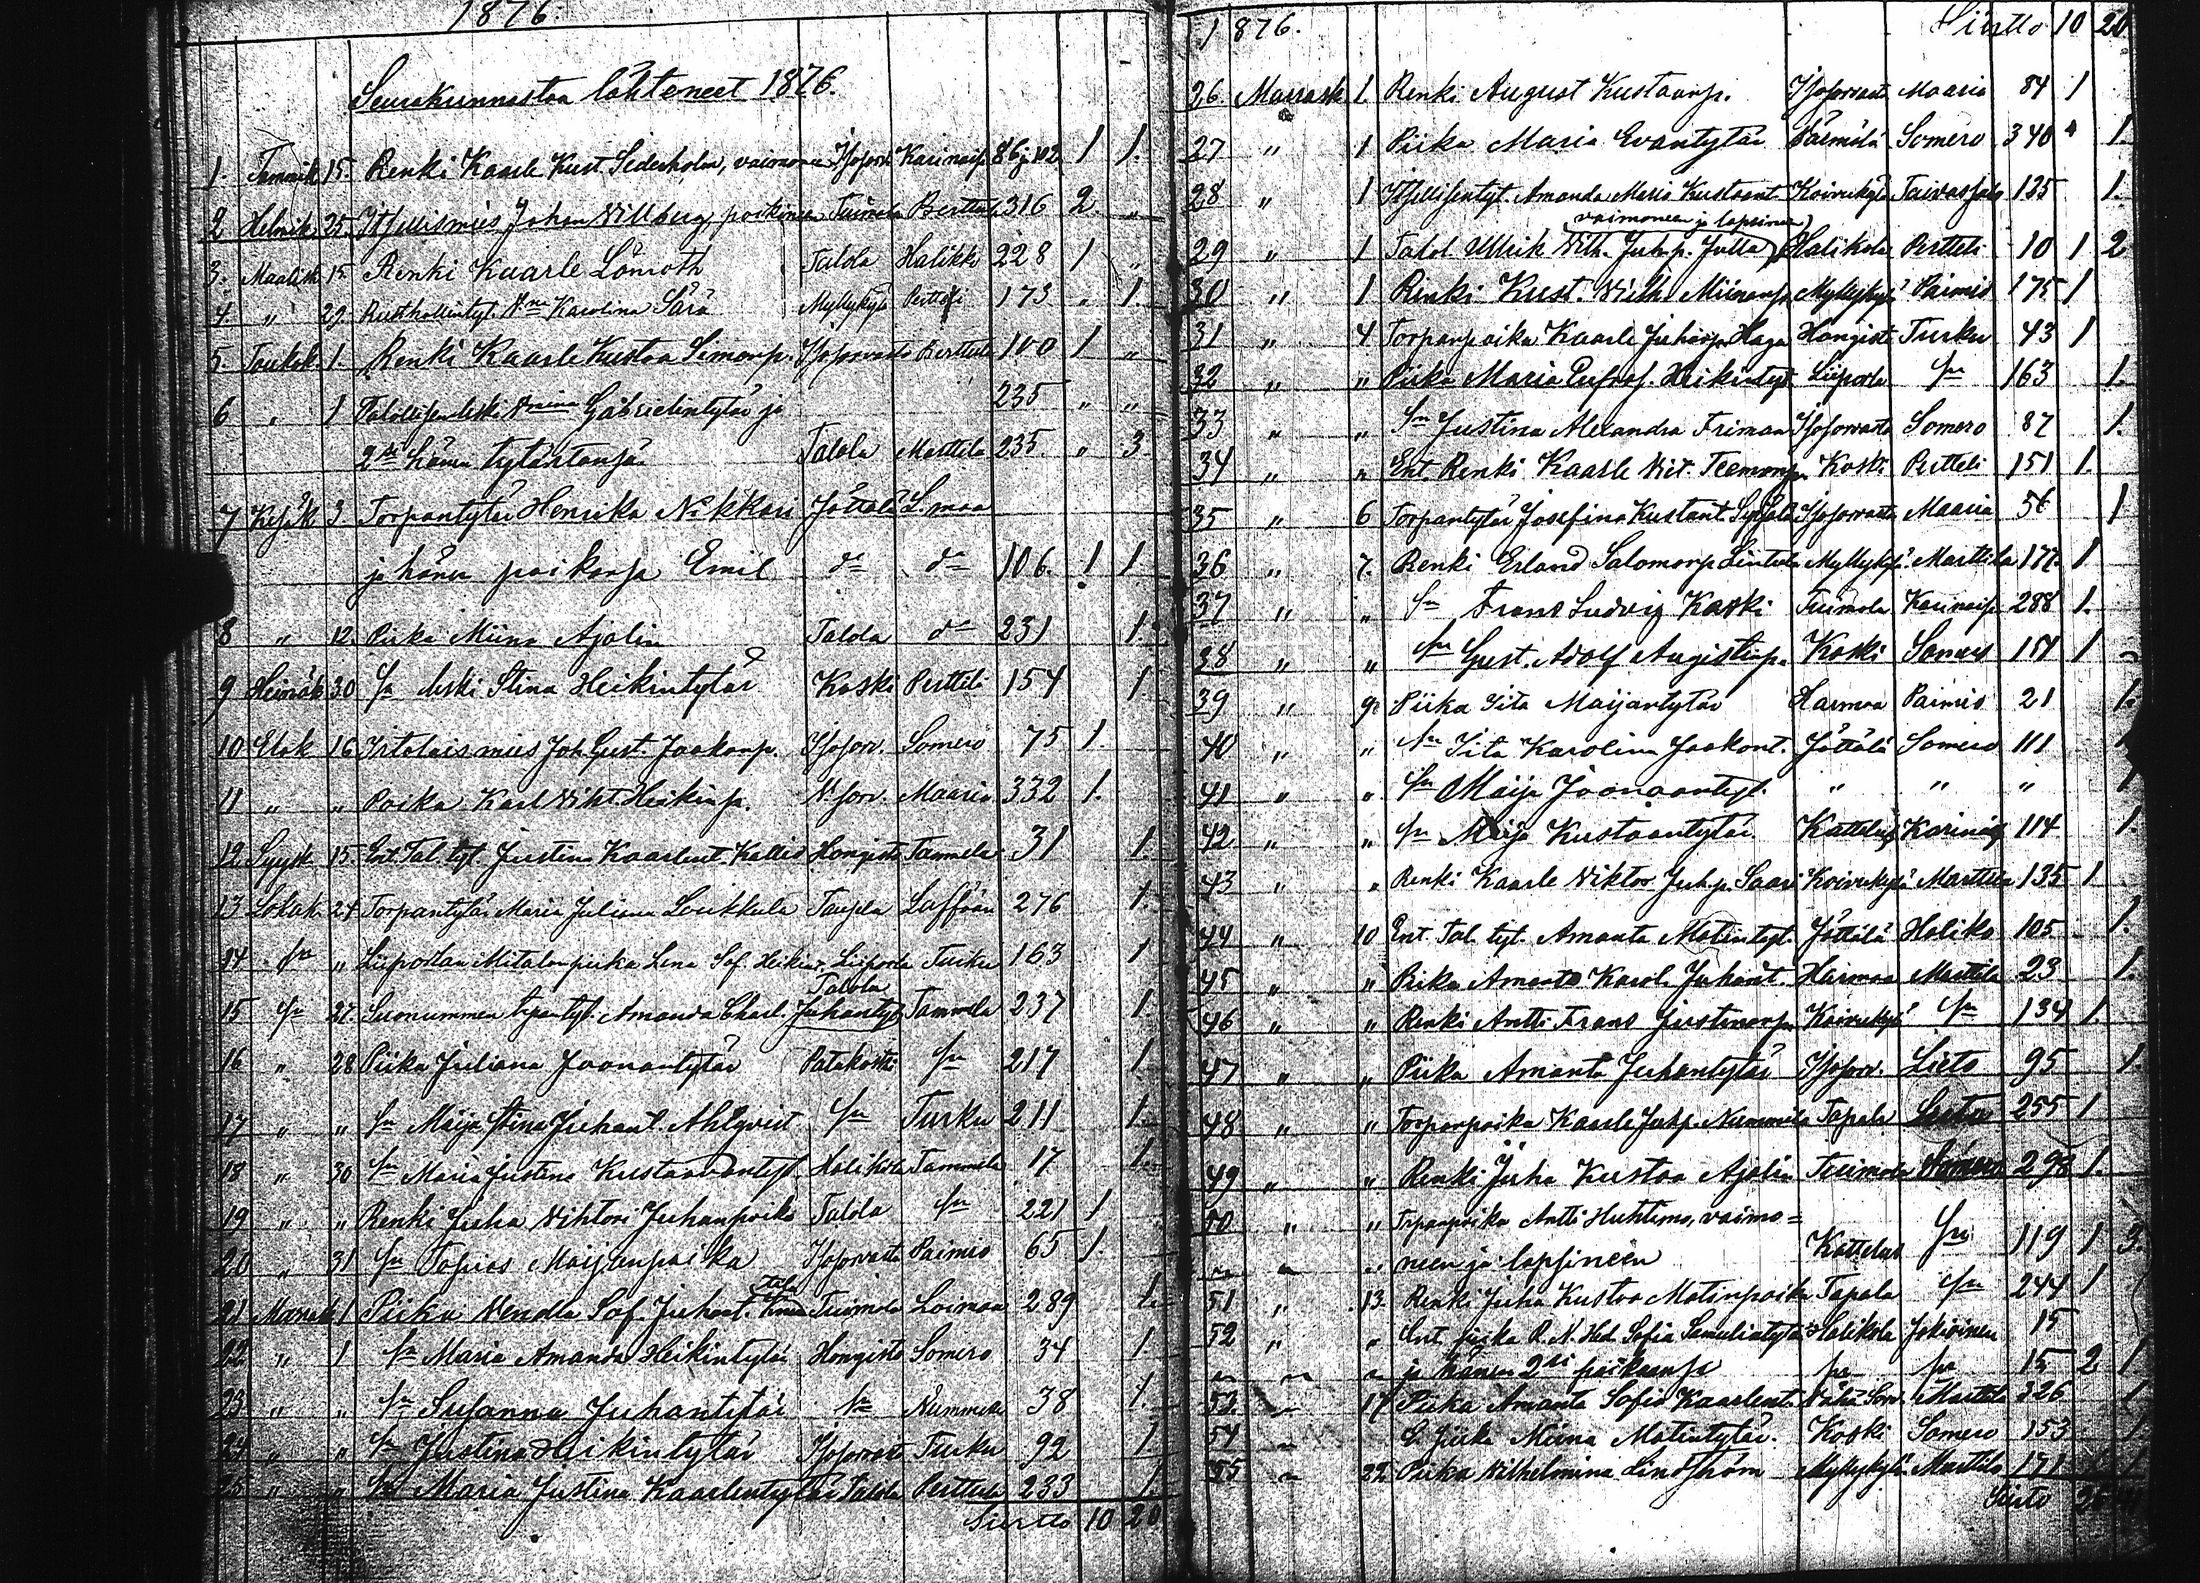 1876.
Seurakunnastaa lähteneet 1876.
1. Tammik 15. Renki Kaarle Kust. Sederholm, vaimonen Isosorv. Karinais. 86 j. 102 1 1.
2 Helmik 25. Itsellismies Johan Willberg, poikineen Tuimala Perttula 316 2. „
3. Maalisk 15 Renki Kaarle Lönroth Talola Halikko 228 1 „
4. „ 29. Rusthollintyt. Karolina Särä Myllykyl Pertteli 173 „ 1.
5. Toukok. 1. Renki Kaarle Kustaa Simonp. Isosorvasto Perttula 100 1 „
6 „ 1 Talollisen leski Gabrielintytär ja 235 „ „
2si hänen tytärtänsä Talola Marttila 235. „ 3
7 Kesäk 3 Torpantytär Henrika Nikkari Jättälä S. maa
ja hänen poikansa Emil do do 106. 1 1
8 „ 12. Piika Miina Ajalin Talola do 231 1.
9 Heinäk 30 sn leski Stina Heikintytär Koski Pertteli 154 1.
10. Elok 16 Irtolaismies Joh. Gust. Jaakonp. Isosorv. Somero 75 1.
11 „ „ Poika Karl Wiht. Heikinp. V. sorv. Maaria 332 1.
12 Syysk 15 Ent. Tal. tyt. Justina Kaarlent. Kallis Hongisto Tammela 31 1.
13 Lokak 24 Torpantytär Maria Juliana Leikkula Taipla 276 1.
14 sn „ Liipolan Mitalan piika Lena Sof. Heikin. Liipola Turku 163 1
15 sn 27. Suonummen trpantyt. Amanda Charl. Juhantyt Talola Tammela 237 1.
16 „ 28 Piika Juliana Joonantytär Patakoski sn 217 1.
17 „ „ sn Maija Stina Juhant. Ahlqvist sn Turku 211 1.
18 „ 30 sn Maria Justina Kustaavantyt. Halikola Tammela 17 1.
19 „ „ Renki Juha Wihtori Juhanpoika Talola sn 221 1
20 „ 31 sn Topias Maijanpoika Isosorvasto Paimio 65 1.
21 Marrask 1 Piika Wendla Sof. Juhant. Tuimala Loimaa 289 1.
22 „ 1 sn Maria Amanda Heikintytär Hongisto Somero 34 1.
23 „ „ sn Susanna Juhantytär sn Nummela 38 1.
24 „ „ sn Justina Heikintytär Isosorvasto Turku 92 1.
25 „ „ sn Maria Justina Kaarlentytär Talola Perttula 233 1.
Siertto 10 20
1876. Siertto 10 20
26. Marrask 1. Renki August Kustaanp. Isosorvasto Maaria 84 1
27 „ 1 Piika Maria Evantytär Särmälä Somero 340 1.
28 „ 1 Itsellisentyt. Amanda Maria Kustaant. Koivukylä Taivassalo 125 1.
vaimoneen ja lapsineen
29 „ 1 Talol. Ulrik Wilh. Juh.p. Julla Halikola Pertteli 10 1 2
30 „ 1 Renki Kust. Wilh. Miinanp. Myllykyl Paimio 175 1
31 „ 4 Torpanpoika Kaarle Juhanp. Haga Hongisto Turku 43 1
32 „ „ Piika Maria Eufros. Heikintyt. Liipola sn 163 1.
33 „ „ sn Justina Alexandra Friman Isosorvasto Somero 87 1.
34 „ „ Ent. Renki Kaarle Wit. Teemonp. Koski Pertteli 151 1.
35 „ 6 Torpantytär Josefina Kustant. Isosorvasto Maaria 56 1
36 „ 7. Renki Erland Salomonp Lintula Myllykyl. Marttila 177. 1
37 „ „ sn Frans Ludvig Koski Tuimala Karinais. 288 1.
38 „ „ sn Gust. Adolf Augustinp. Koski Somero 151 1
39 „ 9. Piika Iita Maijantytär Harmaa Paimio 21 1.
40 „ „ sn Iita Karolina Jaakont. Jättälä Somero 111 1
41 „ „ sn Maija Joonaantyt. „ „ „ 1
42 „ „ sn Maija Kustaantytär. Kattelus Karinais 114 1.
43 „ „ Renki Kaarle Viktor Juh.p. Saari Koivukylä Marttila 135 1
44 „ 10 Ent. Tal. tyt. Amanta Matintyt. Jättälä Haliko 105 1.
45 „ „ Piika Amanta Karol. Juhant. Harmaa Marttila 23 1.
46 „ „ Renki Antti Frans Justinanp. Koivukyl sn 134 1.
47 „ „ Piika Amanta Juhantytär Isosorv. Lieto 95 1.
48 „ „ Torpanpoika Kaarle Juhp. Nummila Tapala Lieto 255 1
49 „ „ Renki Juha Kustaa Ajalin Tuimala Somero 298 1.
50 „ „ Trpanpoika Antti Huhtimo, vaimo=
„ „ „ neen ja lapsineen Kattelus sn 119 1 3.
51 „ 13. Renki Juha Kustaa Matinpoika Tapala sn 244 1
52 „ „ Ent. piika R. N. Hed. Sofia Samulintytär Halikola Jokioinen 15
„ „ „ ja hänen 2si poikaansa sn sn 15 2 1
53. „ 17 Piika Amanta Sofia Kaarlent. Vähä Sorv. Marttila 326 1
54 „ E. piika Miina Matintytär. Koski Somero 153 1
55 „ 22. Piika Wilhelmina Lindström Myllykylä Marttila 171 1
Siirto